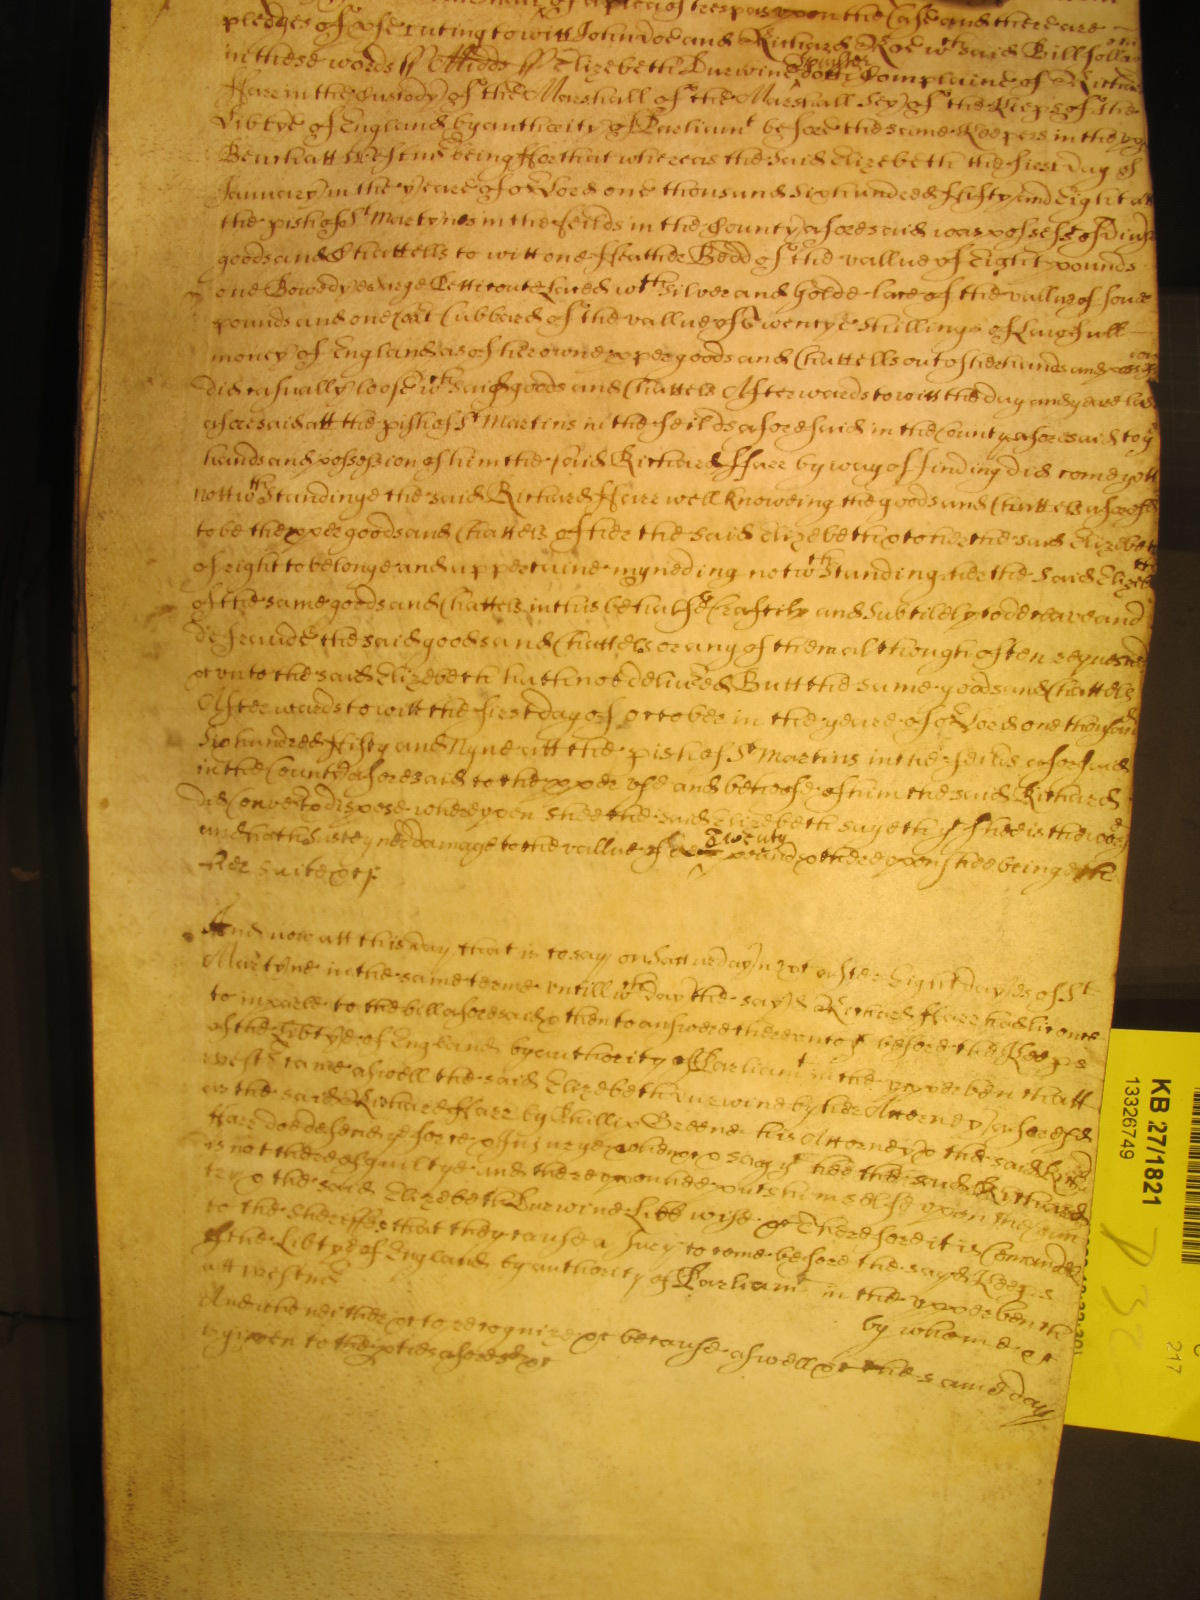 of a plea of trespas upon the Case and there are
pledges of prosecuting to witt John Doe and Richard Roe wch said Bill follow
in these words ss Midds ss Elizebeth Burwine Spinster doth Complaine of Richard
Farr in the Custody of the Marshall of the Marshallsey of the Keeps of the
Libtye of England by authority of Parliamt before the same Keepers in the upp
Bench att Westmr being ffor that whereas the said Elizebeth the first day of
January in the yeare of or Lord one thousand Six hundred ffifty and Eight att
the pish of St Martynes in the feilds in the County aforesaid was possess of divrse
goods and Chattells to witt one ffeather Bedd of the vallue of Eight pounds
one Petticoate laced wth Silver and Golde lace of the vallue of foure
pounds and one Cubbard of the vallue of Twentye Shillings of Lawfull
money of England as of her owne pper goods and Chattells out of her hands and poss
did casually loose wch said goods and Chattels Afterwards to witt the day and yeare last
aforesaid att the pish of St Martins in the feilds aforesaid in the County aforesaid to ye
hands and possession of him the said Richard ffarr by way of finding did come yett
nottwthstandinge the said Richard ffarr well knoweing the goods and Chattels aforesd
to be the pper goods and Chattels of her the said Elizebeth & to her the said Elizebeth
of right to belonge and appertaine myneding notwthstanding her the said Elizeb
of the same goods and Chattels in this behalfe Craftily and Subtilely to deceave and
defraude the said goods and Chattels or any of them although often requested
&c unto the said Elizebeth hath not delivered Butt the same goods and Chattels
Afterwards to witt the first day of October in the yeare of or Lord one thousand
Six hundred ffifty and Nyne att the pish of St Martins in the feilds aforesaid
in the County aforesaid to the pper use and behoofe of him the said Richard
did Convert & dispose whereupon shee the said Elizebeth sayeth yt shee is the worse
and hath susteyned damage to the vallue of Twenty pound & thereupon shee bringeth
her suite &c

And now att this day that is to say on Satturday next after Eight dayes of St
Martyne in the same terme untill wch day the sayd Richard ffarr had licence
to imparle to the bill aforesaid & then to answere thereunto &c before the Keeps
of the Libtye of England by authority of Parliamt in the upper bench att
Westr came aswell the said Elizebeth Burwine by her Attorney aforesd
as the said Richard ffarr by Phillip Greene his Attorney & the said Richd
ffarr doe defend ye force & Injurye when &c & say yt hee the said Richard
is not thereof guiltye and thereupon hee puts himselfe upon the Coun
try & the said Elizebeth Burwine Likewise &c Therefore it is Comanded
to the Sheriffes that they cause a Jury to come before the sayd Keeps
of the Libtye of England by authority of Parliamt in the upper bench
att Westmr by whome &c
And who neither &c to recognize &c because aswell &c the same day
is given to the pties aforesd &c
KB 27/1821
13326749
217